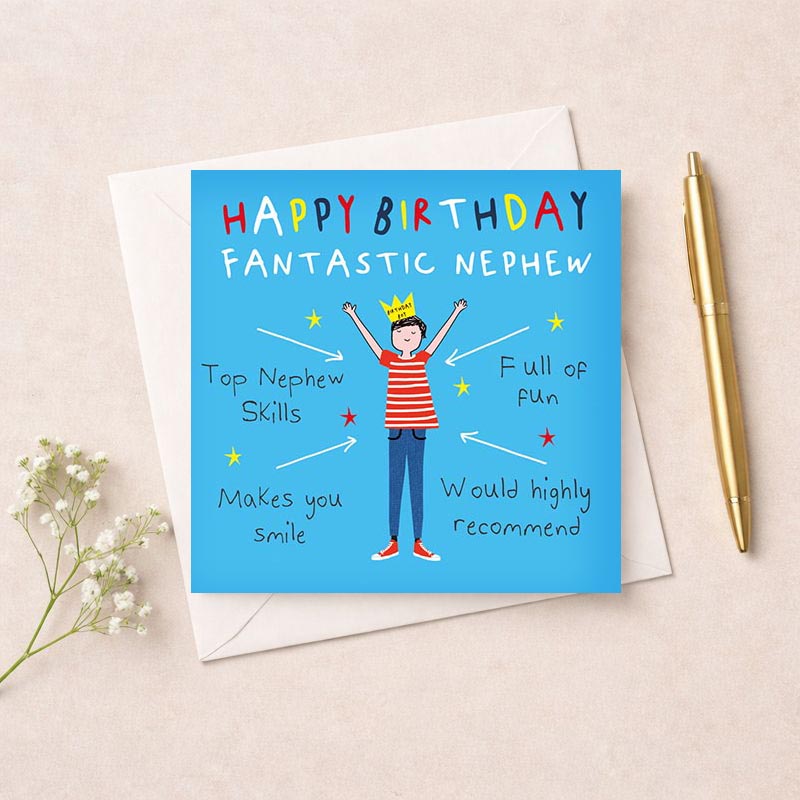 HAPPY BIRTHDAY
FANTASTIC NEPHEW
BIRTHDAY
BOY
Top Nephew
Skills
Full of
fun
Makes you
smile
Would highly
recommend